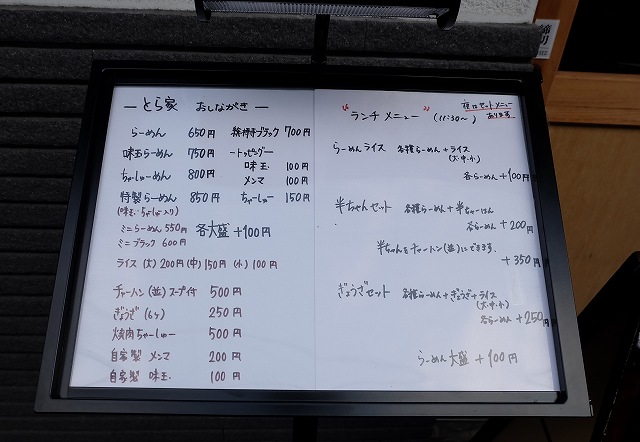 ― とら家 おしながき ―
らーめん 650円
味玉らーめん 750円
ちゃしゅーめん 800円
特製らーめん 850円
(味玉・ちゃしゅー入り)
ミニらーめん 550円
ミニブラック 600円
各大盛 +100円
ライス (大) 200円 (中) 150円 (小) 100円
チャーハン (並) スープ付 500円
ぎょうざ (6ヶ) 250円
焼肉ちゃーしゅー 500円
自家製 メンマ 200円
自家製 味玉 100円
ブラック 700円
―トッピング―
味玉 100円
メンマ 100円
ちゃーしゅー 150円
"ランチ メニュー" (11:30~)
セットメニュー
あります
らーめんライス 各種らーめん+ライス
(大・中・小)
各らーめん +100円
半ちゃんセット 各種らーめん+半ちゃーはん
各らーめん +200
半ちゃんをチャーハン(並)にできます。
+350円
ぎょうざセット 各種らーめん+ぎょうざ+ライス
(大・中・小)
各らーめん +250円
らーめん 大盛 +100円